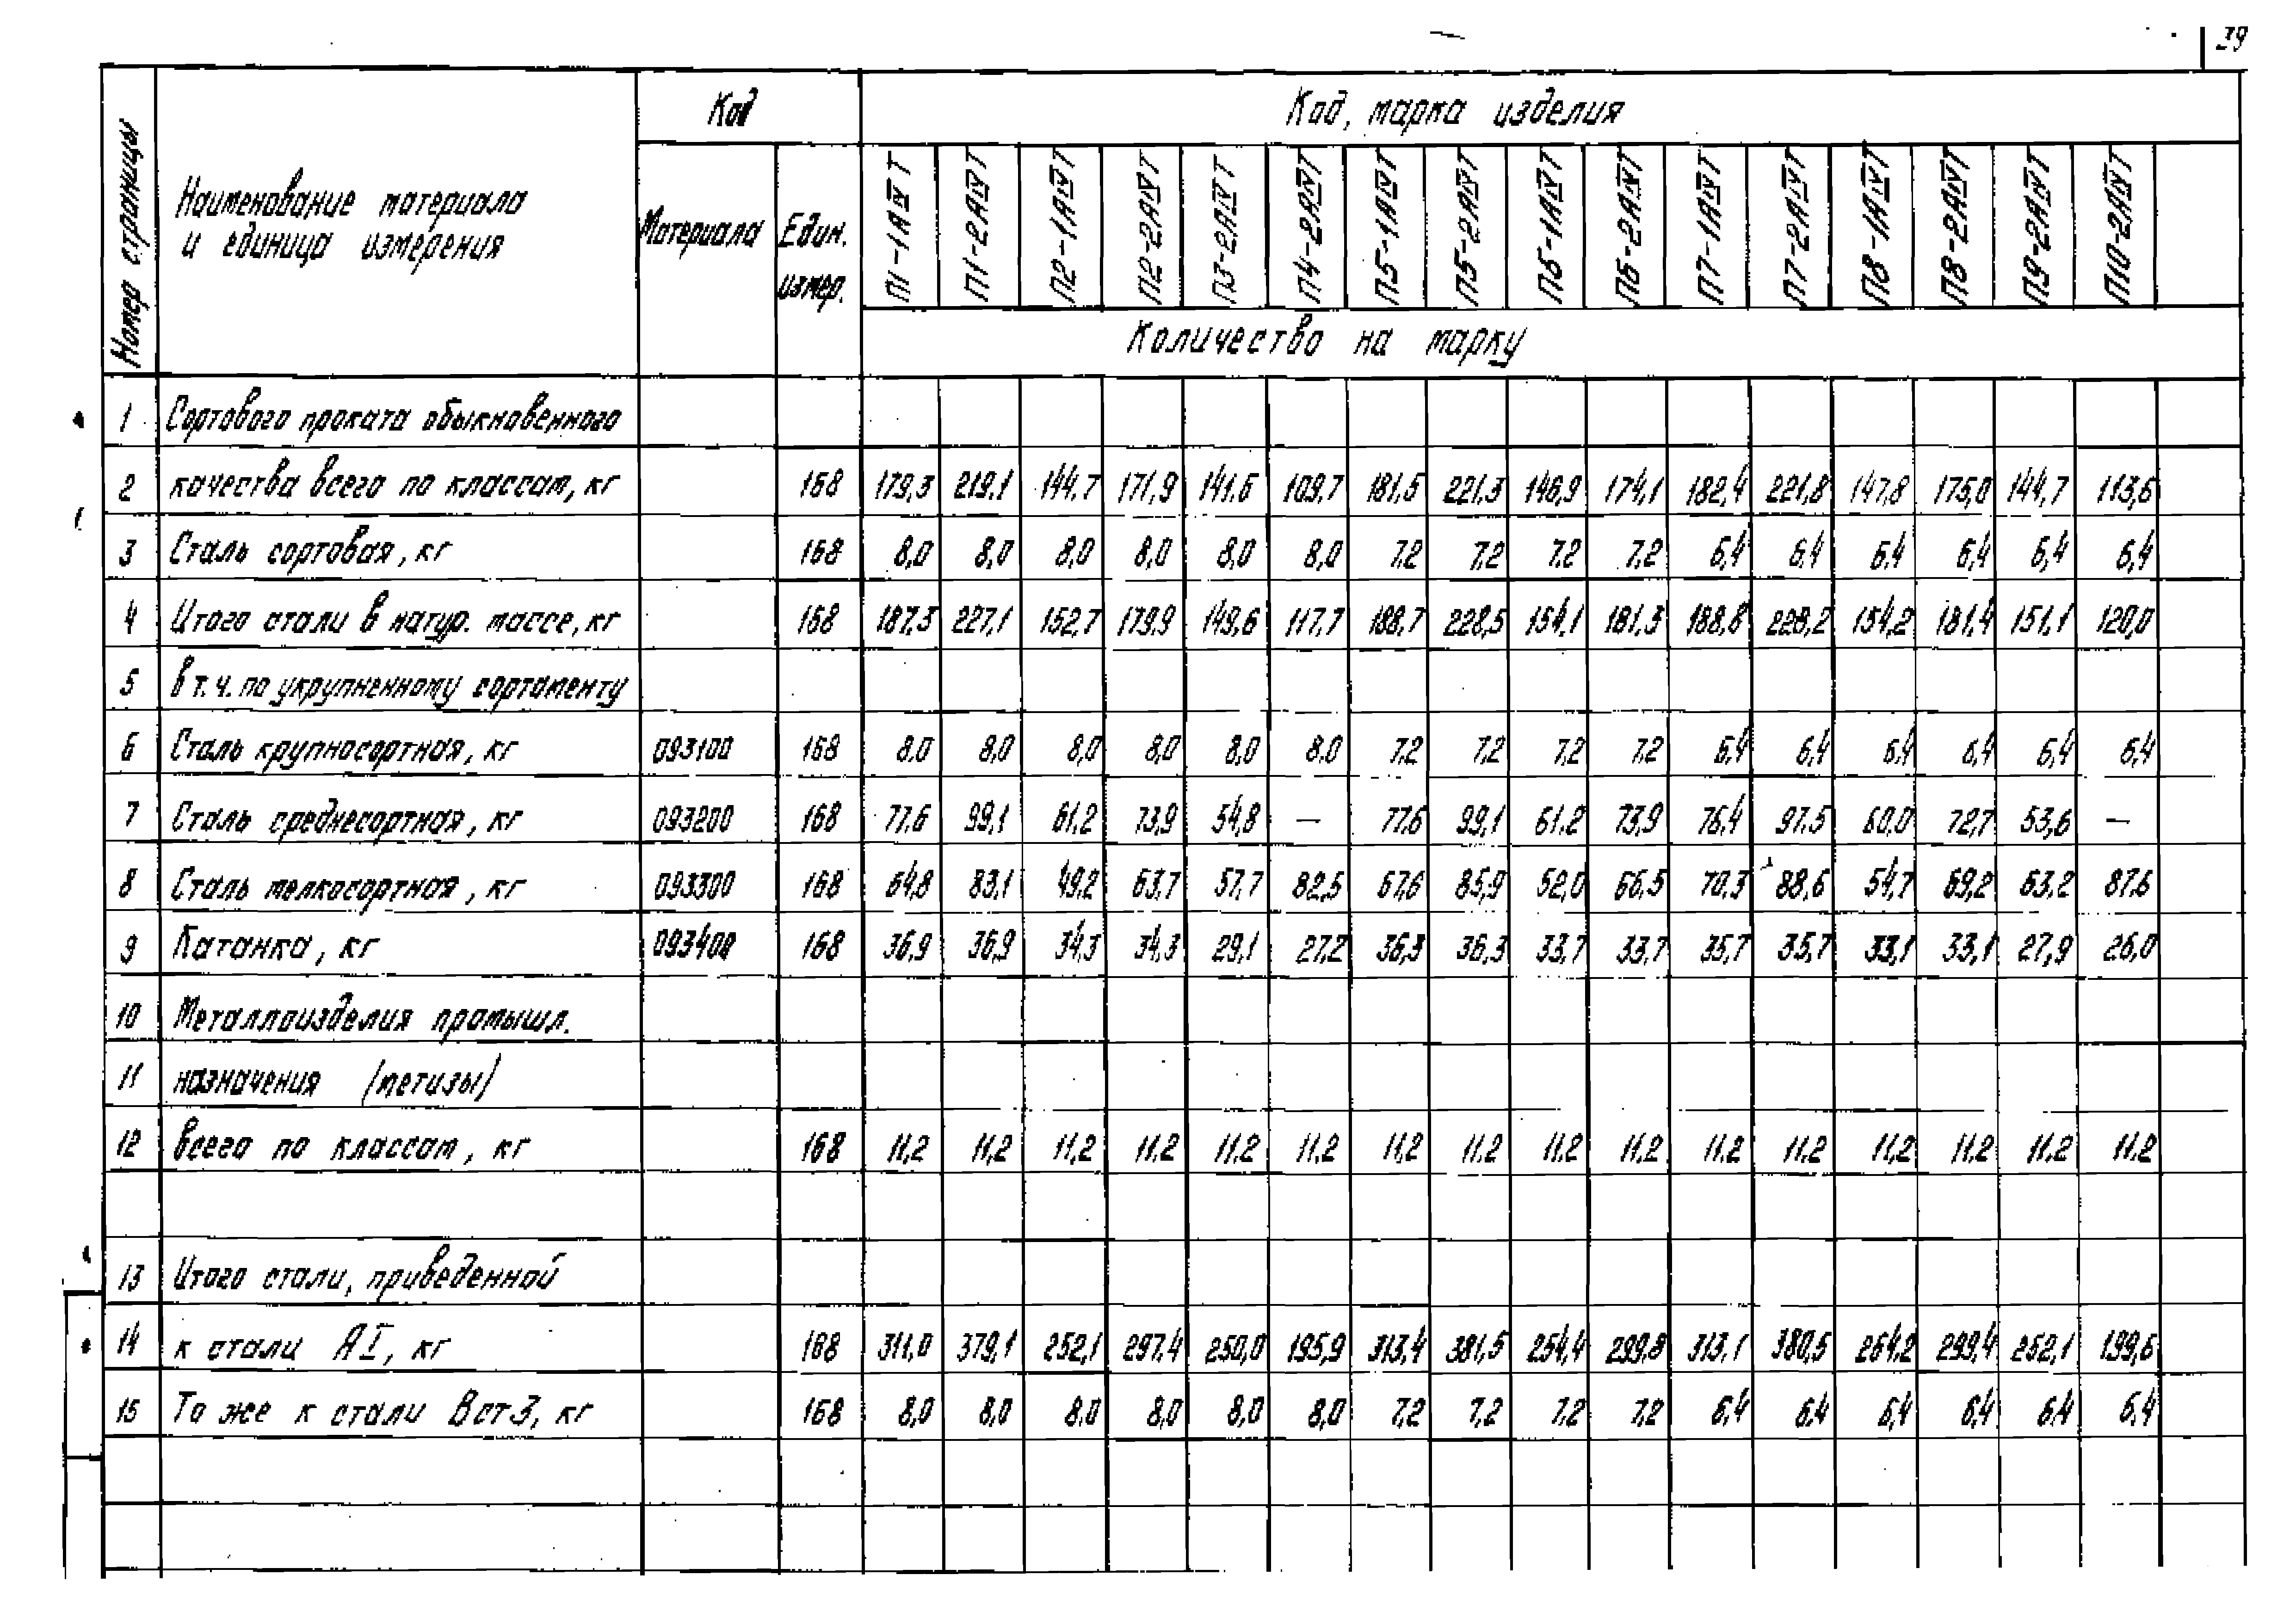 39
Номер страницы
Наименование материала
и единица измерения
Код
Материала
Един.
измер.
Код, марка изделия
П1-1АIVТ П1-2АIVТ П2-1АIVТ П2-2АIVТ П3-2АIVТ П4-2АIVТ П5-1АIVТ П5-2АIVТ П6-1АIVТ П6-2АIVТ П7-1АIVТ П7-2АIVТ П8-1АIVТ П8-2АIVТ П9-2АIVТ П10-2АIVТ
Количество на марку
1 Сортового проката обыкновенного
2 качества всего по классам, кг 168 179,3 219,1 144,7 171,9 141,6 109,7 181,5 221,3 146,9 174,1 182,4 221,8 147,8 175,0 144,7 113,6
3 Сталь сортовая, кг 168 8,0 8,0 8,0 8,0 8,0 8,0 7,2 7,2 7,2 7,2 6,4 6,4 6,4 6,4 6,4 6,4
4 Итого стали в натур. массе, кг 168 187,3 227,1 152,7 179,9 149,6 117,7 188,7 228,5 154,1 181,3 188,8 228,2 154,2 181,4 151,1 120,0
5 в т. ч. по укрупненному сортаменту
6 Сталь крупносортная, кг 093100 168 8,0 8,0 8,0 8,0 8,0 8,0 7,2 7,2 7,2 7,2 6,4 6,4 6,4 6,4 6,4 6,4
7 Сталь среднесортная, кг 093200 168 77,6 99,1 61,2 73,9 54,8 — 77,6 99,1 61,2 73,9 76,4 97,5 60,0 72,7 53,6 —
8 Сталь мелкосортная, кг 093300 168 64,8 83,1 49,2 63,7 57,7 82,5 67,6 85,9 52,0 66,5 70,3 88,6 54,7 69,2 63,2 87,6
9 Катанка, кг 093400 168 36,9 36,9 34,3 34,3 29,1 27,2 36,3 36,3 33,7 33,7 35,7 35,7 33,1 33,1 27,9 26,0
10 Металлоизделия промышл.
11 назначения (метизы)
12 всего по классам, кг 168 11,2 11,2 11,2 11,2 11,2 11,2 11,2 11,2 11,2 11,2 11,2 11,2 11,2 11,2 11,2 11,2
13 Итого стали, приведенной
14 к стали АI, кг 168 311,0 379,1 252,1 297,4 250,0 195,9 313,4 381,5 254,4 299,8 313,1 380,5 254,2 299,4 252,1 199,6
15 То же к стали Вст3, кг 168 8,0 8,0 8,0 8,0 8,0 8,0 7,2 7,2 7,2 7,2 6,4 6,4 6,4 6,4 6,4 6,4